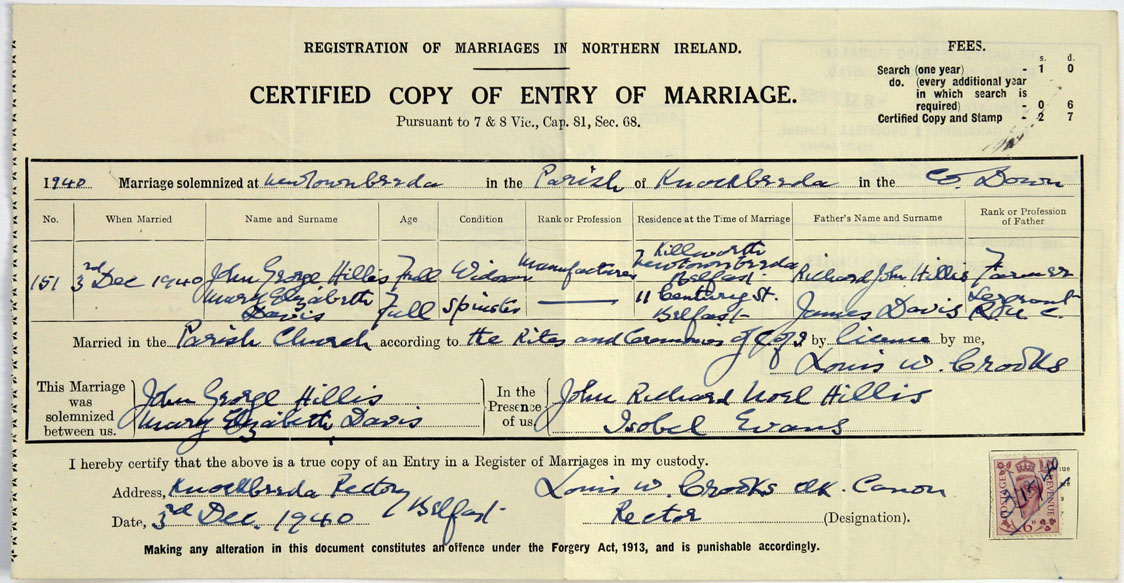 REGISTRATION OF MARRIAGES IN NORTHERN IRELAND.
CERTIFIED COPY OF ENTRY OF MARRIAGE.
Pursuant to 7 & 8 Vic., Cap. 81, Sec. 68.
FEES.
s. d.
Search (one year) - 1 0
do. (every additional year
in which search is
required) - 0 6
Certified Copy and Stamp - 2 7
1940 Marriage solemnized at Newtownbreda in the Parish of Knockbreda in the Co. Down
No. When Married Name and Surname Age Condition Rank or Profession Residence at the Time of Marriage Father's Name and Surname Rank or Profession of Father
151 3rd Dec 1940 John George Hillis Full Widower Manufacturer Killworth Newtownbreda Belfast Richard John Hillis Farmer
Mary Elizabeth Davis Full Spinster 11 Century St. Belfast James Davis Sergeant R.U.C.
Married in the Parish Church according to the Rites and Ceremonies of C of I by licence by me,
Louis W. Crooks
This Marriage was solemnized between us.
John George Hillis
Mary Elizabeth Davis
In the Presence of us
John Richard Noel Hillis
Isobel Evans
I hereby certify that the above is a true copy of an Entry in a Register of Marriages in my custody.
Address, Knockbreda Rectory Belfast Louis W. Crooks Canon
Date, 3rd Dec. 1940 Rector (Designation).
Making any alteration in this document constitutes an offence under the Forgery Act, 1913, and is punishable accordingly.
POSTAGE REVENUE
6D